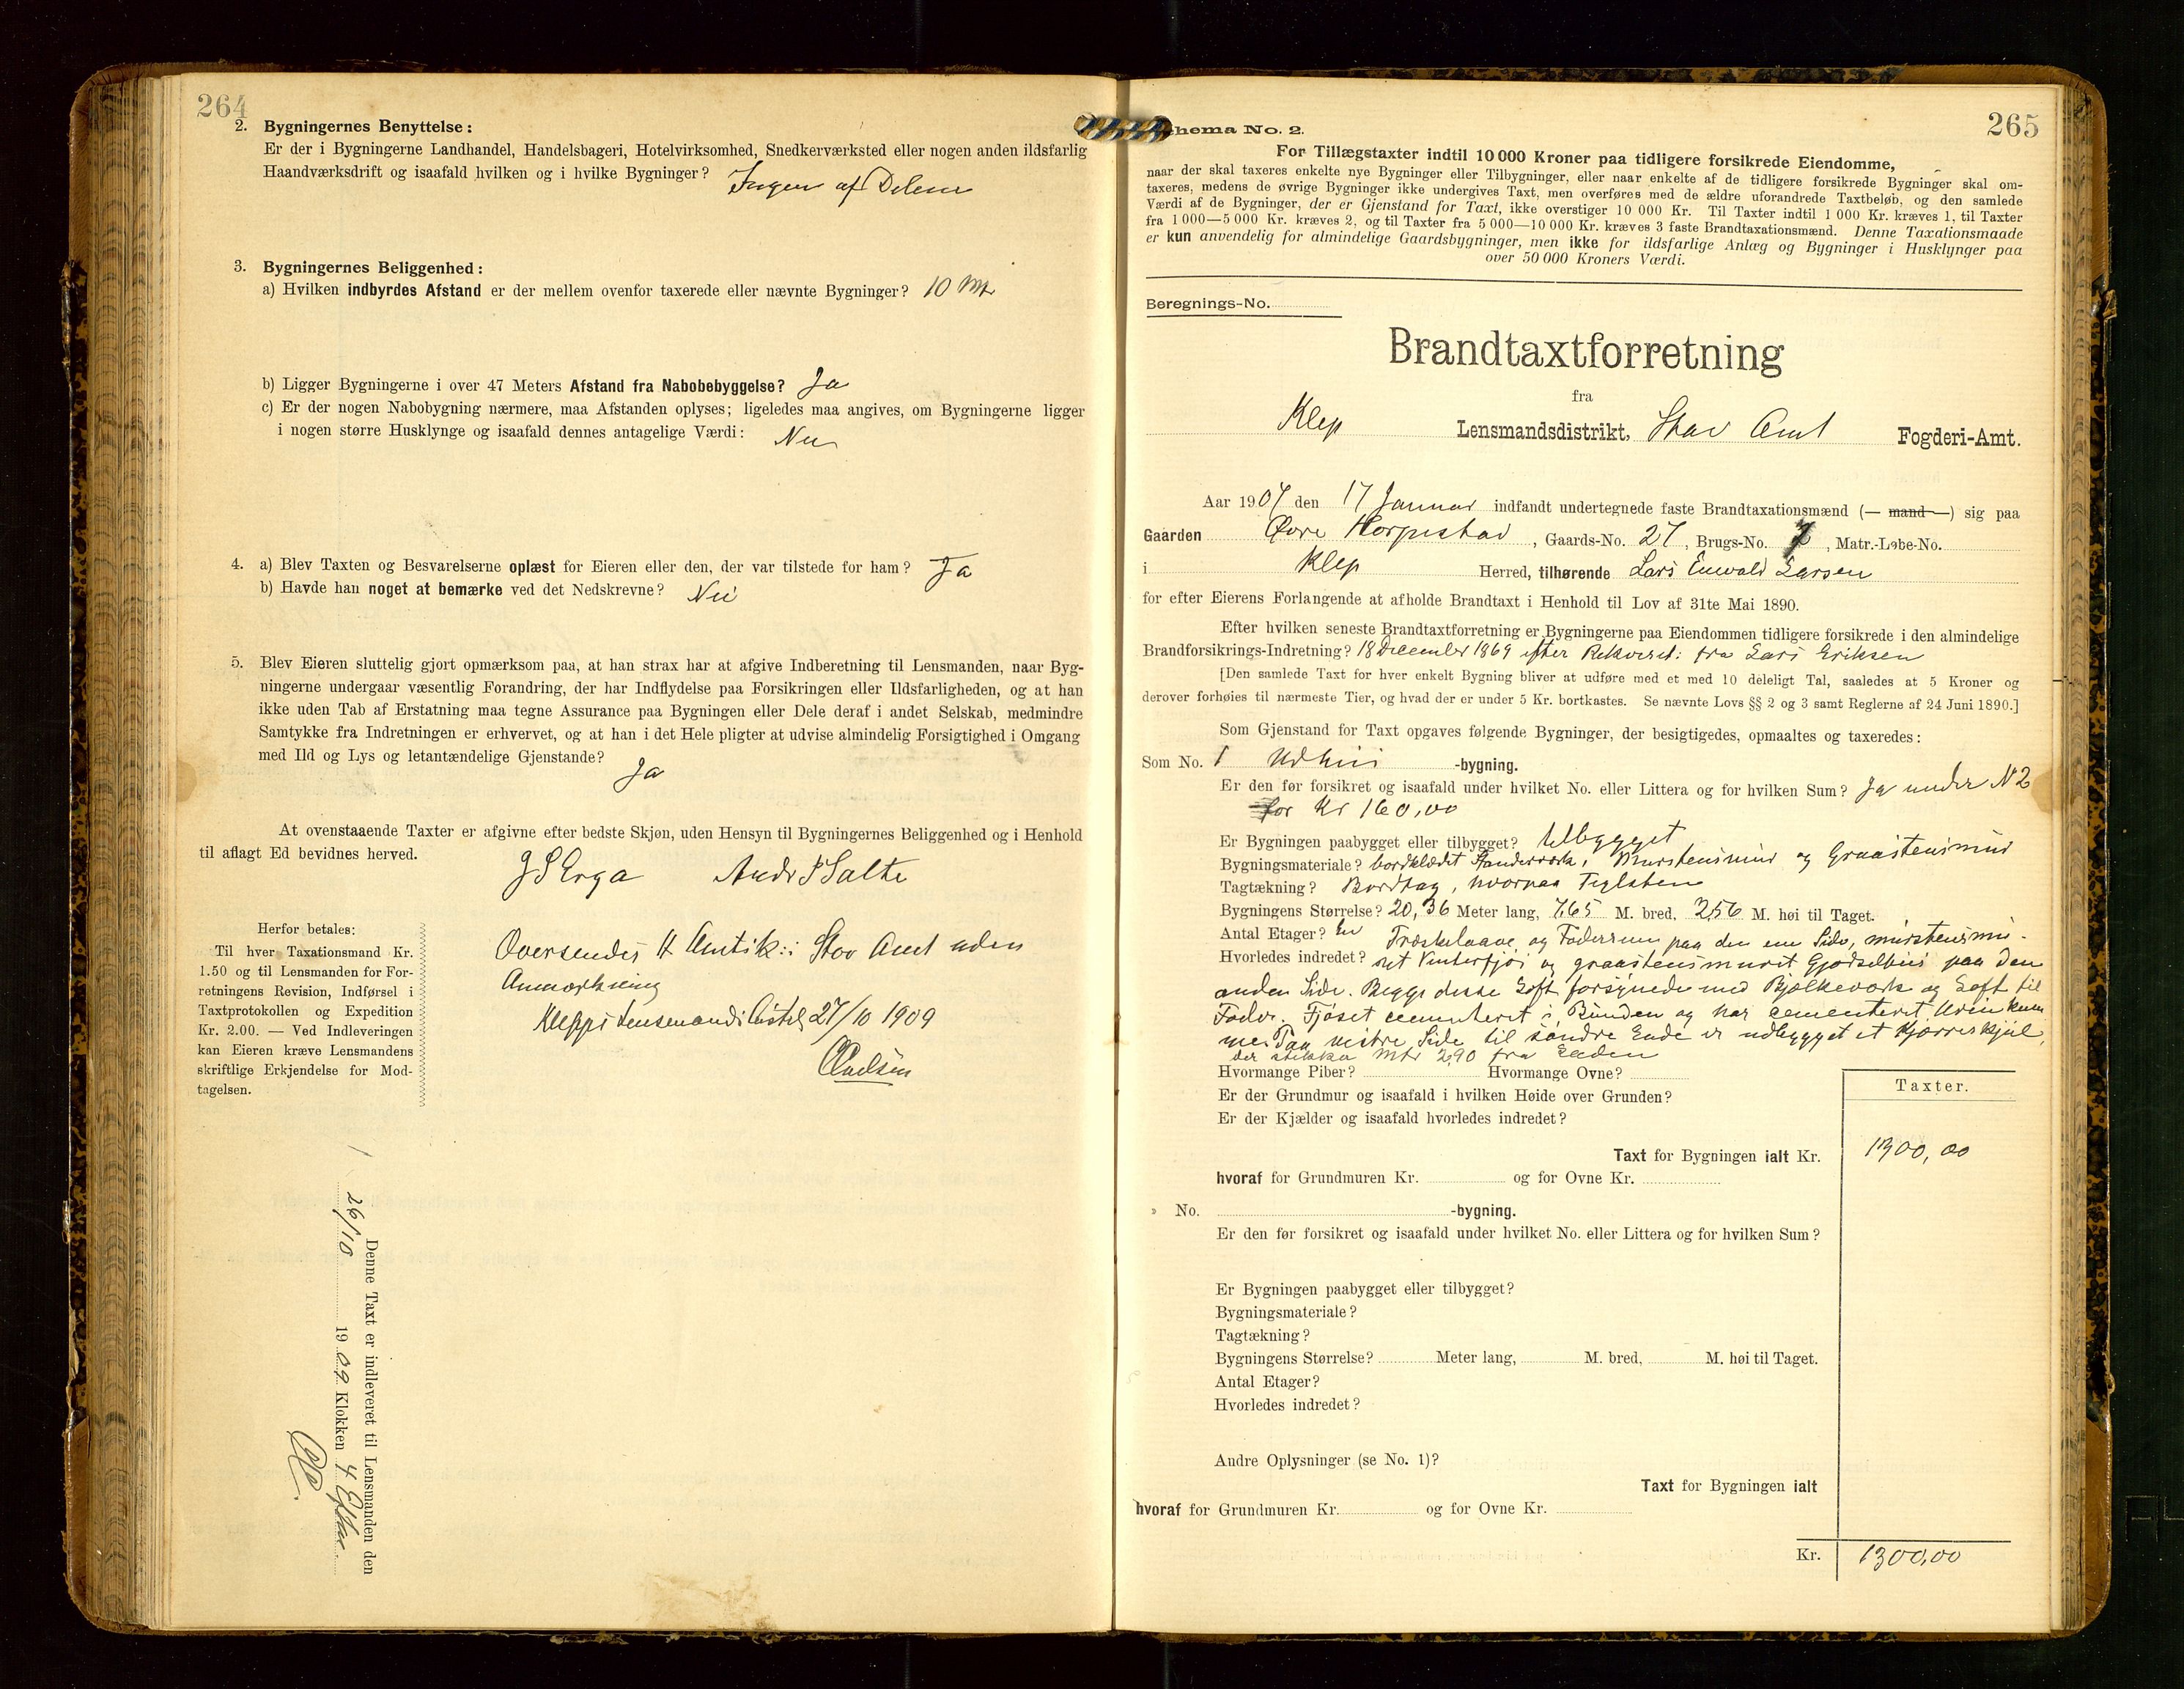 264
2. Bygningernes Benyttelse:
Er der i Bygningerne Landhandel, Handelsbageri, Hotelvirksomhed, Snedkerværksted eller nogen anden ildsfarlig
Haandværksdrift og isaafald hvilken og i hvilke Bygninger? Ingen af Delene
3. Bygningernes Beliggenhed:
a) Hvilken indbyrdes Afstand er der mellem ovenfor taxerede eller nævnte Bygninger? 10 Mtr
b) Ligger Bygningerne i over 47 Meters Afstand fra Nabobebyggelse? Ja
c) Er der nogen Nabobygning nærmere, maa Afstanden oplyses; ligeledes maa angives, om Bygningerne ligger
i nogen større Husklynge og isaafald dennes antagelige Værdi: Nei
4. a) Blev Taxten og Besvarelserne oplæst for Eieren eller den, der var tilstede for ham? Ja
b) Havde han noget at bemærke ved det Nedskrevne? Nei
5. Blev Eieren sluttelig gjort opmærksom paa, at han strax har at afgive Indberetning til Lensmanden, naar Byg-
ningerne undergaar væsentlig Forandring, der har Indflydelse paa Forsikringen eller Ildsfarligheden, og at han
ikke uden Tab af Erstatning maa tegne Assurance paa Bygningen eller Dele deraf i andet Selskab, medmindre
Samtykke fra Indretningen er erhvervet, og at han i det Hele pligter at udvise almindelig Forsigtighed i Omgang
med Ild og Lys og letantændelige Gjenstande? Ja
At ovenstaaende Taxter er afgivne efter bedste Skjøn, uden Hensyn til Bygningernes Beliggenhed og i Henhold
til aflagt Ed bevidnes herved.
J S Erga Andr P Salte
Herfor betales:
Til hver Taxationsmand Kr.
1.50 og til Lensmanden for For-
retningens Revision, Indførsel i
Taxtprotokollen og Expedition
Kr. 2.00. — Ved Indleveringen
kan Eieren kræve Lensmandens
skriftlige Erkjendelse for Mod-
tagelsen.
Oversendes Stav Amt uden
Anmærkning
27/10 1909
Denne Taxt er indleveret til Lensmanden den
26/10 1909 Klokken 4 Efter.
265
hema No. 2.
For Tillægstaxter indtil 10 000 Kroner paa tidligere forsikrede Eiendomme,
naar der skal taxeres enkelte nye Bygninger eller Tilbygninger, eller naar enkelte af de tidligere forsikrede Bygninger skal om-
taxeres, medens de øvrige Bygninger ikke undergives Taxt, men overføres med de ældre uforandrede Taxtbeløb, og den samlede
Værdi af de Bygninger, der er Gjenstand for Taxt, ikke overstiger 10 000 Kr. Til Taxter indtil 1 000 Kr. kræves 1, til Taxter
fra 1 000—5 000 Kr. kræves 2, og til Taxter fra 5 000—10 000 Kr. kræves 3 faste Brandtaxationsmænd. Denne Taxationsmaade
er kun anvendelig for almindelige Gaardsbygninger, men ikke for ildsfarlige Anlæg og Bygninger i Husklynger paa
over 50 000 Kroners Værdi.
Beregnings-No.
Brandtaxtforretning
fra
Klep Lensmandsdistrikt, Stav Amt Fogderi-Amt.
Aar 1907 den 17 Januar indfandt undertegnede faste Brandtaxationsmænd (— mand —) sig paa
Gaarden Øvre Horpestad, Gaards-No. 27, Brugs-No. 7, Matr.-Løbe-No.
i Klep Herred, tilhørende Lars Enwald Larsen
for efter Eierens Forlangende at afholde Brandtaxt i Henhold til Lov af 31te Mai 1890.
Efter hvilken seneste Brandtaxtforretning er Bygningerne paa Eiendommen tidligere forsikrede i den almindelige
Brandforsikrings-Indretning? 18 December 1869 efter Rekvisit: fra Lars Eriksen
[Den samlede Taxt for hver enkelt Bygning bliver at udføre med et med 10 deleligt Tal, saaledes at 5 Kroner og
derover forhøies til nærmeste Tier, og hvad der er under 5 Kr. bortkastes. Se nævnte Lovs §§ 2 og 3 samt Reglerne af 24 Juni 1890.]
Som Gjenstand for Taxt opgaves følgende Bygninger, der besigtigedes, opmaaltes og taxeredes:
Som No. 1 Udhus -bygning.
Er den før forsikret og isaafald under hvilket No. eller Littera og for hvilken Sum? Ja under N 2
for Kr 160,00
Er Bygningen paabygget eller tilbygget? Udbygget
Bygningsmateriale? bordklædt Standerværk, Murstensmur og Graastensmur
Tagtækning? Bordtag, hvorpaa Teglsten
Bygningens Størrelse? 20,36 Meter lang, 7,65 M. bred, 2,56 M. høi til Taget.
Antal Etager? En Træskelaave og Foderrum paa den ene Side, murstensmu-
Hvorledes indredet? ret Vinterfjøs og graastensmuret Gjødselhus paa den
anden Side. Begge disse Loft forsynede med Bjelkeværk og Loft til
Foder. Fjøset cementeret i Bunden og har cementeret Urinkum
me. Paa vestre Side til søndre Ende er udbygget et Kjærreskjul,
der stikker Mtr 2,90 fra Enden
Hvormange Piber? Hvormange Ovne?
Er der Grundmur og isaafald i hvilken Høide over Grunden?
Er der Kjælder og isaafald hvorledes indredet?
Taxter.
Taxt for Bygningen ialt Kr. 1300,00
hvoraf for Grundmuren Kr. og for Ovne Kr.
» No. -bygning.
Er den før forsikret og isaafald under hvilket No. eller Littera og for hvilken Sum?
Er Bygningen paabygget eller tilbygget?
Bygningsmateriale?
Tagtækning?
Bygningens Størrelse? Meter lang, M. bred, M. høi til Taget.
Antal Etager?
Hvorledes indredet?
Andre Oplysninger (se No. 1)?
Taxt for Bygningen ialt
hvoraf for Grundmuren Kr. og for Ovne Kr.
Kr. 1300,00